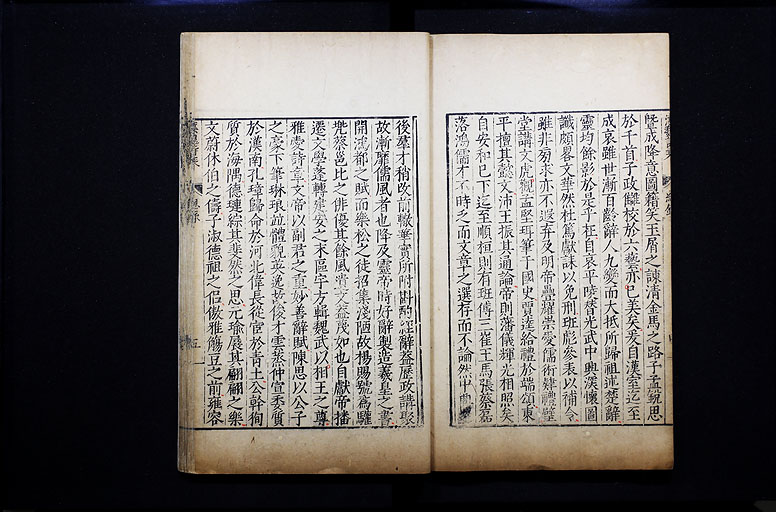 曁成降意圖籍矣玉屑之諫清金馬之路子孟銳思
於千首子政讎校於六藝亦已美矣爰自漢室迄至
成哀雖世漸百齡辭人九變而大抵所歸祖述楚辭
靈均餘影於是乎在自哀平陵替光武中興深懷圖
讖頗畧文華然杜篤獻誄以免刑班彪參表以補令
雖非旁求亦不遐棄及明帝疊耀崇愛儒術肄禮璧
堂講文虎觀孟堅珥筆于國史賈逵給禮於端頌東
平擅其懿文沛王振其通論帝則藩儀輝光相照矣
自安和已下迄至順桓則有班傅三崔王馬張蔡磊
落鴻儒才不時乏而文章之選存而不論然中興
後羣才稍改前轍華實所附斟酌經辭蓋歷政講聚
故漸靡儒風者也降及靈帝時好辭製造羲皇之書
開鴻都之賦而樂松之徒招集淺陋故楊賜號為驩
兠蔡邕比之俳優其餘風遺文蓋蔑如也自獻帝播
遷文學蓬轉建安之末區宇方輯魏武以相王之尊
雅愛詩章文帝以副君之重妙善辭賦陳思以公子
之豪下筆琳琅並體貌英逸故俊才雲蒸仲宣委質
於漢南孔璋歸命於河北偉長從宦於青土公幹徇
質於海隅德璉綜其斐然之思元瑜展其翩翩之樂
文蔚休伯之儔子淑德祖之侶傲雅觴豆之前雍容
五